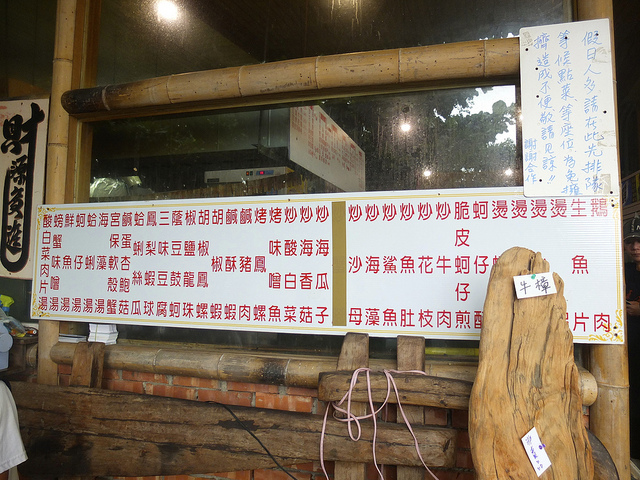 假日人多請在此先排隊
等候點菜等座位,為免擁
擠造成不便敬請見諒!!
謝謝合作
鵝肉
生魚片
燙
燙
燙
燙
蚵仔酥
脆皮蚵仔煎
炒牛肉
炒花枝
炒魚肚
炒鯊魚
炒海藻
炒沙母
炒海瓜子
炒海香菇
炒酸白菜
烤味噌魚
烤鳳螺
鹹豬肉
鹹酥蝦
胡椒蝦
胡椒鳳螺
椒鹽龍珠
蔭豆鼓蚵
三味豆腐
鳳梨蝦球
蛤蜊絲瓜
鹹蛋杏鮑菇
宮保軟殼蟹
海藻湯
蛤蜊湯
蚵仔湯
鮮魚湯
螃蟹味噌湯
酸白菜肉片湯
財源廣進
牛樟